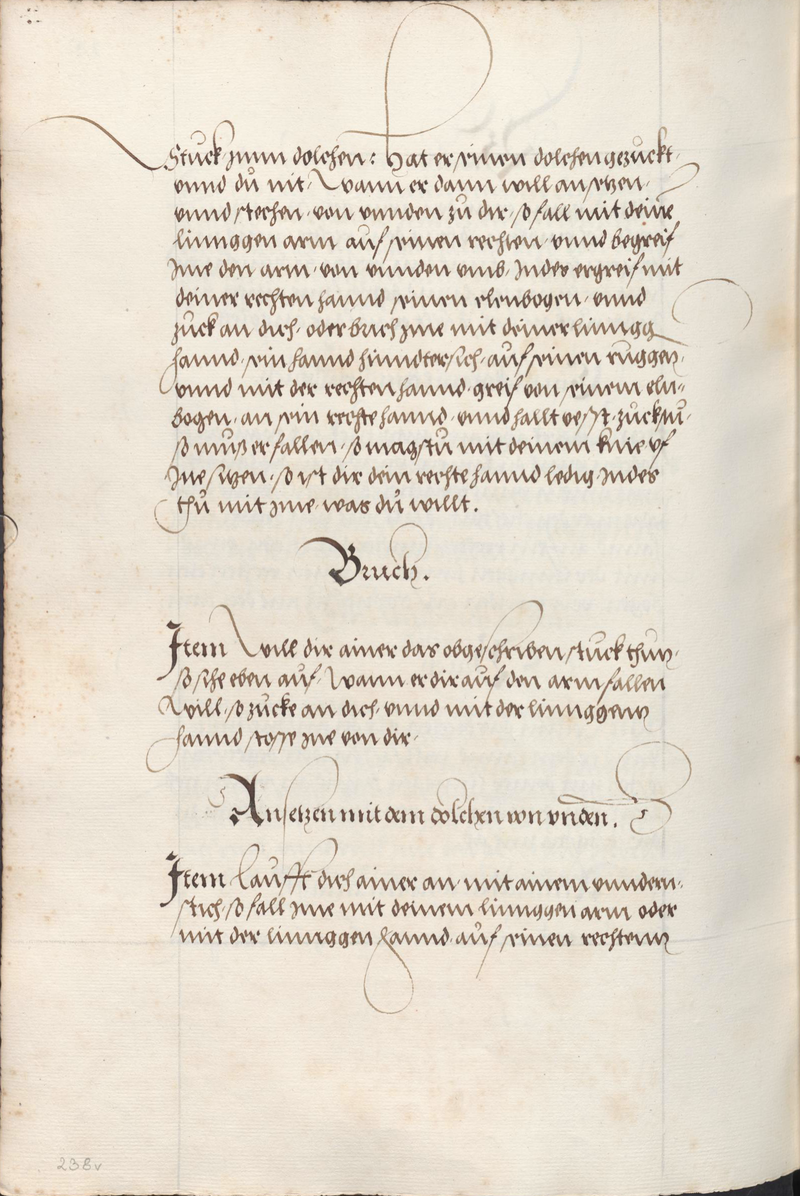 Stuck zum dolchen: Hat er einen dolchen gezuckt·
vnnd du nit· Wann er dann will ansetzen·
vnnd stechen· von vnnden zu dir· so fall mit deine
linnggen arm auf seinen rechten· vnnd begreif
Ime den arm· von vnnden vmb· Indes ergreif mit
deiner rechten hannd seinen elenbogen· vnnd
zuck an dich· oder brich Ime mit deiner linngg
hannd· sein hannd hinndtersich· auf seinen ruggen·
vnnd mit der rechten hannd· greif von seinem eln-
bogen· an sein rechte hannd· vnnd hallt vesst· zuck nu·
so mus er fallen· so magstu mit deinem knie vf
Ine sitzen· so ist dir dein rechte hannd ledig· Indes
thu mit Ime was du willt.
Bruch.
Item Will dir ainer das obgeschriben stuck thun·
so sihe eben auf· Wann er dir auf den arm fallen
Will· so zucke an dich· vnnd mit der linnggenn
hannd stosse Ine von dir·
Ansetzen mit dem dolchen von vnden.
Item Laufft dich ainer an· mit ainem vnndern·
stich· so fall Ime mit deinem linnggen arm oder
mit der linnggen hannd· auf seinen rechtenn
238v